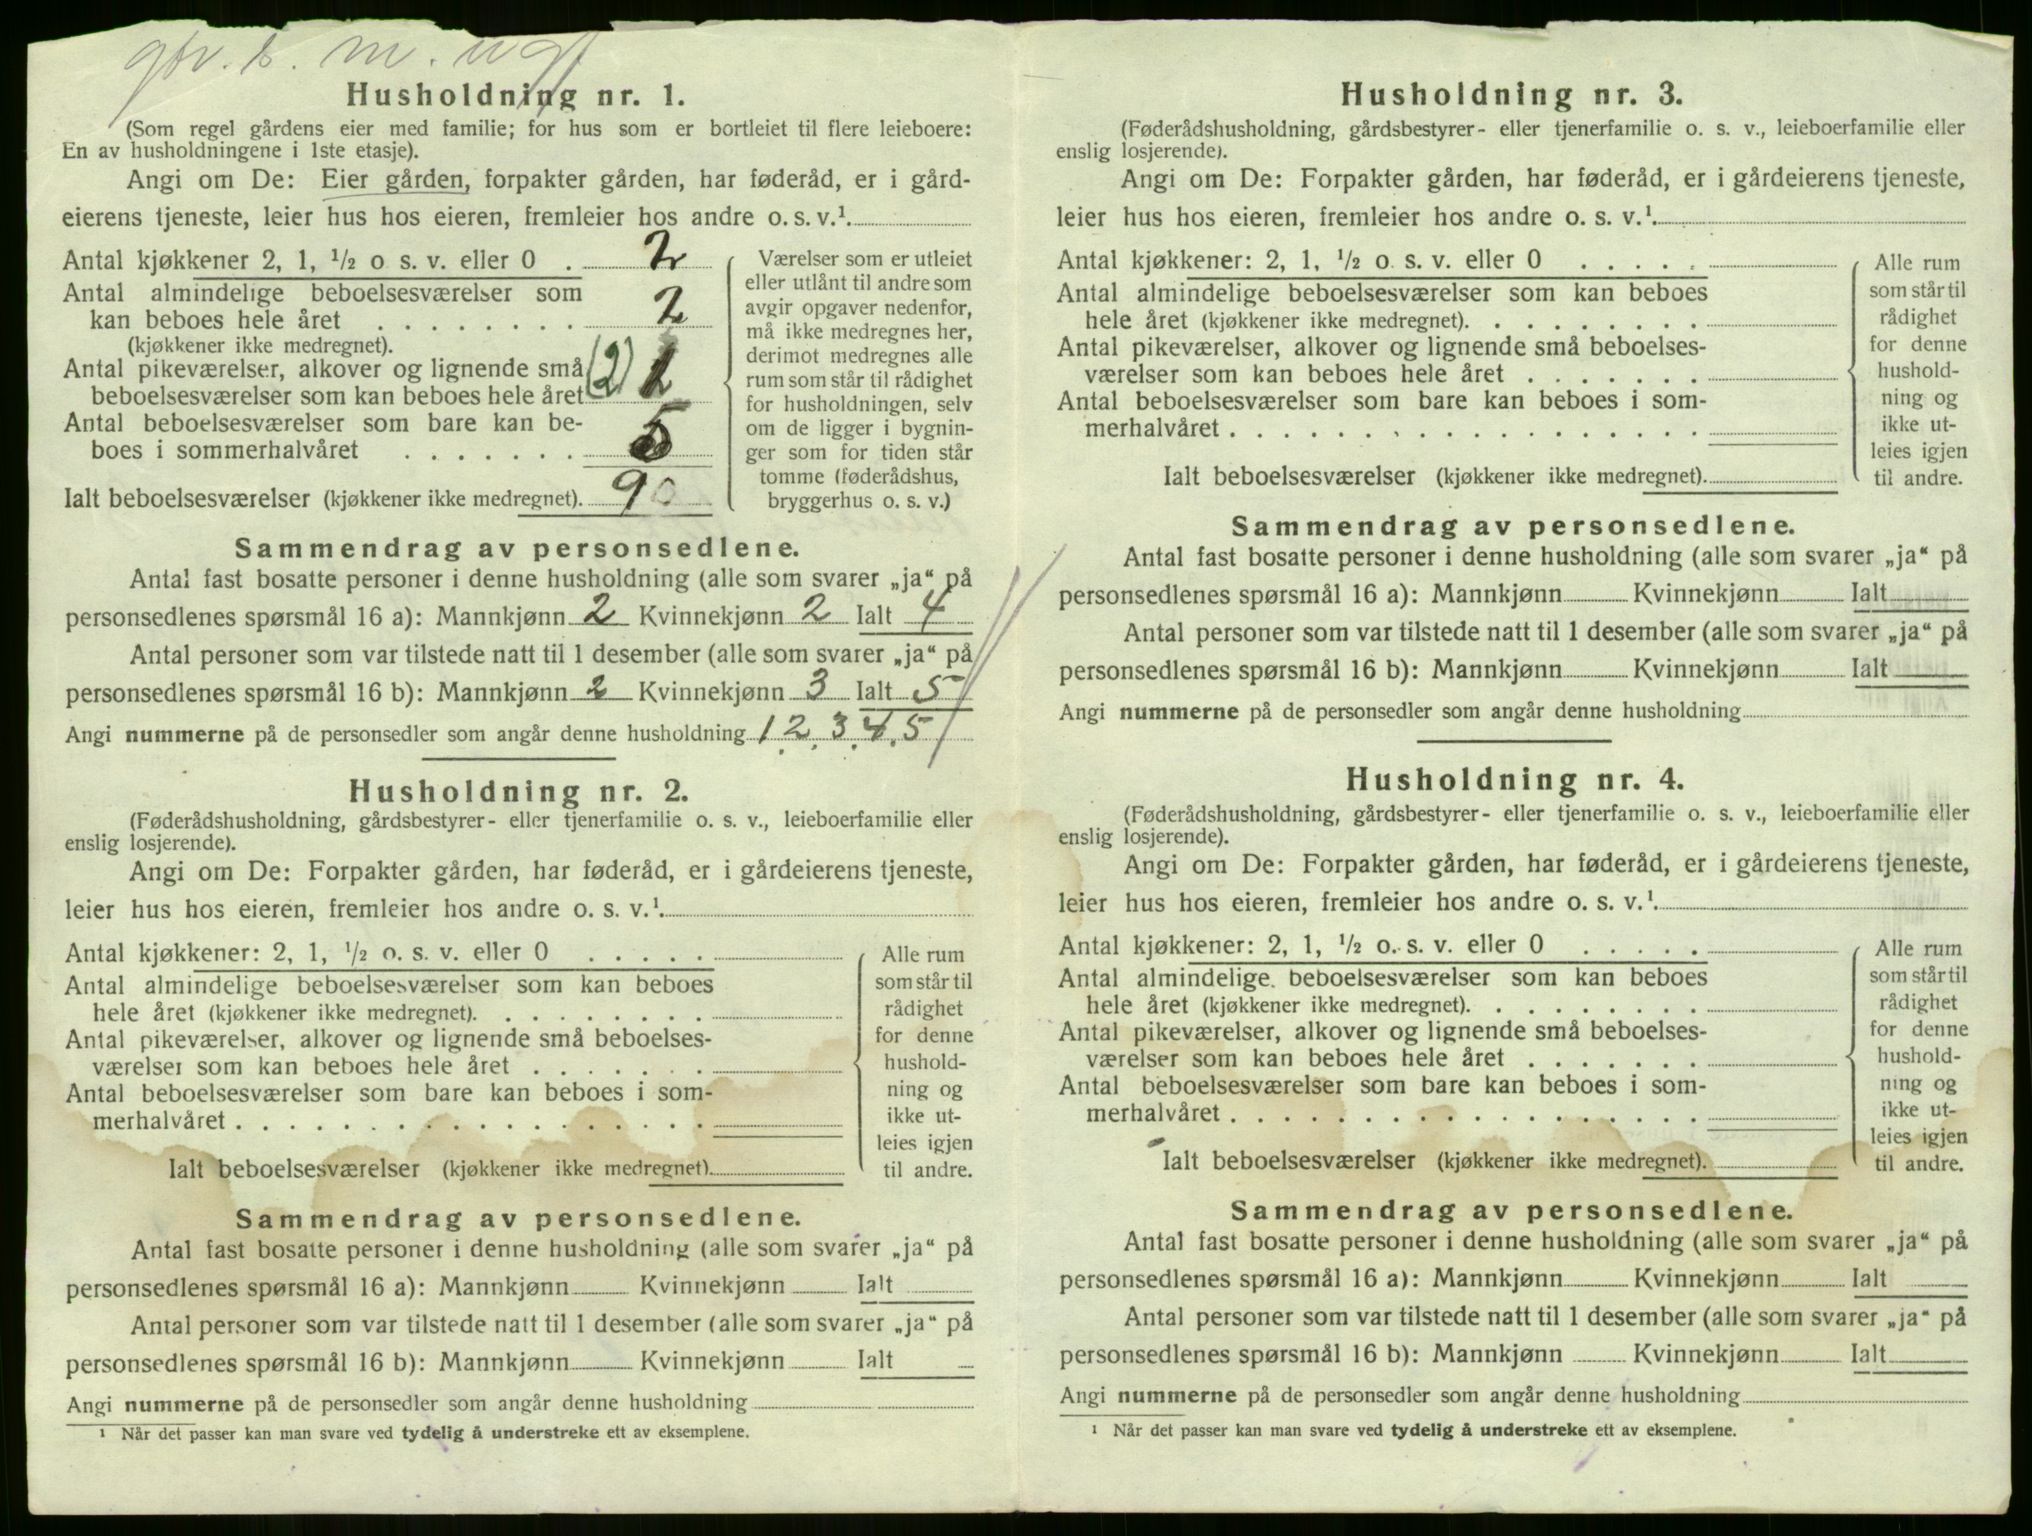 Husholdning nr. 1.
(Som regel gårdens eier med familie; for hus som er bortleiet til flere leieboere:
En av husholdningene i 1ste etasje).
Angi om De: Eier gården, forpakter gården, har føderåd, er i gård-
eierens tjeneste, leier hus hos eieren, fremleier hos andre o. s. v.¹
Antal kjøkkener 2, 1, ½ o s. v. eller 0 . 2
Antal almindelige beboelsesværelser som
kan beboes hele året . . . . . . . . 2
(kjøkkener ikke medregnet).
Antal pikeværelser, alkover og lignende små
beboelsesværelser som kan beboes hele året (2)
Antal beboelsesværelser som bare kan be-
boes i sommerhalvåret . . . . . . . 5
Ialt beboelsesværelser (kjøkkener ikke medregnet). 9
Værelser som er utleiet
eller utlånt til andre som
avgir opgaver nedenfor,
må ikke medregnes her,
derimot medregnes alle
rum som står til rådighet
for husholdningen, selv
om de ligger i bygnin-
ger som for tiden står
tomme (føderådshus,
bryggerhus o. s. v.)
Sammendrag av personsedlene.
Antal fast bosatte personer i denne husholdning (alle som svarer „ja“ på
personsedlenes spørsmål 16 a): Mannkjønn 2 Kvinnekjønn 2 Ialt 4
Antal personer som var tilstede natt til 1 desember (alle som svarer „ja“ på
personsedlenes spørsmål 16 b): Mannkjønn 2 Kvinnekjønn 3 Ialt 5
Angi nummerne på de personsedler som angår denne husholdning 1 2, 3, 4, 5
Husholdning nr. 2.
(Føderådshusholdning, gårdsbestyrer- eller tjenerfamilie o. s. v., leieboerfamilie eller
enslig losjerende).
Angi om De: Forpakter gården, har føderåd, er i gårdeierens tjeneste,
leier hus hos eieren, fremleier hos andre o. s. v.¹
Antal kjøkkener: 2, 1, ½ o. s. v. eller 0 . . . . .
Antal almindelige beboelsesværelser som kan beboes
hele året (kjøkkener ikke medregnet). . . . . . . . .
Antal pikeværelser, alkover og lignende små beboelses-
værelser som kan beboes hele året . . . . . . .
Antal beboelsesværelser som bare kan beboes i som-
merhalvåret . . . . . . . . . . . . . . . . . .
Ialt beboelsesværelser (kjøkkener ikke medregnet).
Alle rum
som står til
rådighet
for denne
hushold-
ning og
ikke ut-
leies igjen
til andre.
Sammendrag av personsedlene.
Antal fast bosatte personer i denne husholdning (alle som svarer „ja“ på
personsedlenes spørsmål 16 a): Mannkjønn Kvinnekjønn Ialt
Antal personer som var tilstede natt til 1 desember (alle som svarer „ja“ på
personsedlenes spørsmål 16 b): Mannkjønn Kvinnekjønn Ialt
Angi nummerne på de personsedler som angår denne husholdning
¹ Når det passer kan man svare ved tydelig å understreke ett av eksemplene.
Husholdning nr. 3.
(Føderådshusholdning, gårdsbestyrer- eller tjenerfamilie o. s. v., leieboerfamilie eller
enslig losjerende).
Angi om De: Forpakter gården, har føderåd, er i gårdeierens tjeneste,
leier hus hos eieren, fremleier hos andre o. s. v.¹
Antal kjøkkener: 2, 1, ½ o. s. v. eller 0 . . . . .
Antal almindelige beboelsesværelser som kan beboes
hele året (kjøkkener ikke medregnet). . . . . . . . .
Antal pikeværelser, alkover og lignende små beboelses-
værelser som kan beboes hele året . . . . . . .
Antal beboelsesværelser som bare kan beboes i som-
merhalvåret . . . . . . . . . . . . . . . . . .
Ialt beboelsesværelser (kjøkkener ikke medregnet).
Alle rum
som står til
rådighet
for denne
hushold-
ning og
ikke ut-
leies igjen
til andre.
Sammendrag av personsedlene.
Antal fast bosatte personer i denne husholdning (alle som svarer „ja“ på
personsedlenes spørsmål 16 a): Mannkjønn Kvinnekjønn Ialt
Antal personer som var tilstede natt til 1 desember (alle som svarer „ja“ på
personsedlenes spørsmål 16 b): Mannkjønn Kvinnekjønn Ialt
Angi nummerne på de personsedler som angår denne husholdning
Husholdning nr. 4.
(Føderådshusholdning, gårdsbestyrer- eller tjenerfamilie o. s. v., leieboerfamilie eller
enslig losjerende).
Angi om De: Forpakter gården, har føderåd, er i gårdeierens tjeneste,
leier hus hos eieren, fremleier hos andre o. s. v.¹
Antal kjøkkener: 2, 1, ½ o. s. v. eller 0 . . . . .
Antal almindelige beboelsesværelser som kan beboes
hele året (kjøkkener ikke medregnet). . . . . . . . .
Antal pikeværelser, alkover og lignende små beboelses-
værelser som kan beboes hele året . . . . . . .
Antal beboelsesværelser som bare kan beboes i som-
merhalvåret . . . . . . . . . . . . . . . . . .
Ialt beboelsesværelser (kjøkkener ikke medregnet).
Alle rum
som står til
rådighet
for denne
hushold-
ning og
ikke ut-
leies igjen
til andre.
Sammendrag av personsedlene.
Antal fast bosatte personer i denne husholdning (alle som svarer „ja“ på
personsedlenes spørsmål 16 a): Mannkjønn Kvinnekjønn Ialt
Antal personer som var tilstede natt til 1 desember (alle som svarer „ja“ på
personsedlenes spørsmål 16 b): Mannkjønn Kvinnekjønn Ialt
Angi nummerne på de personsedler som angår denne husholdning
¹ Når det passer kan man svare ved tydelig å understreke ett av eksemplene.